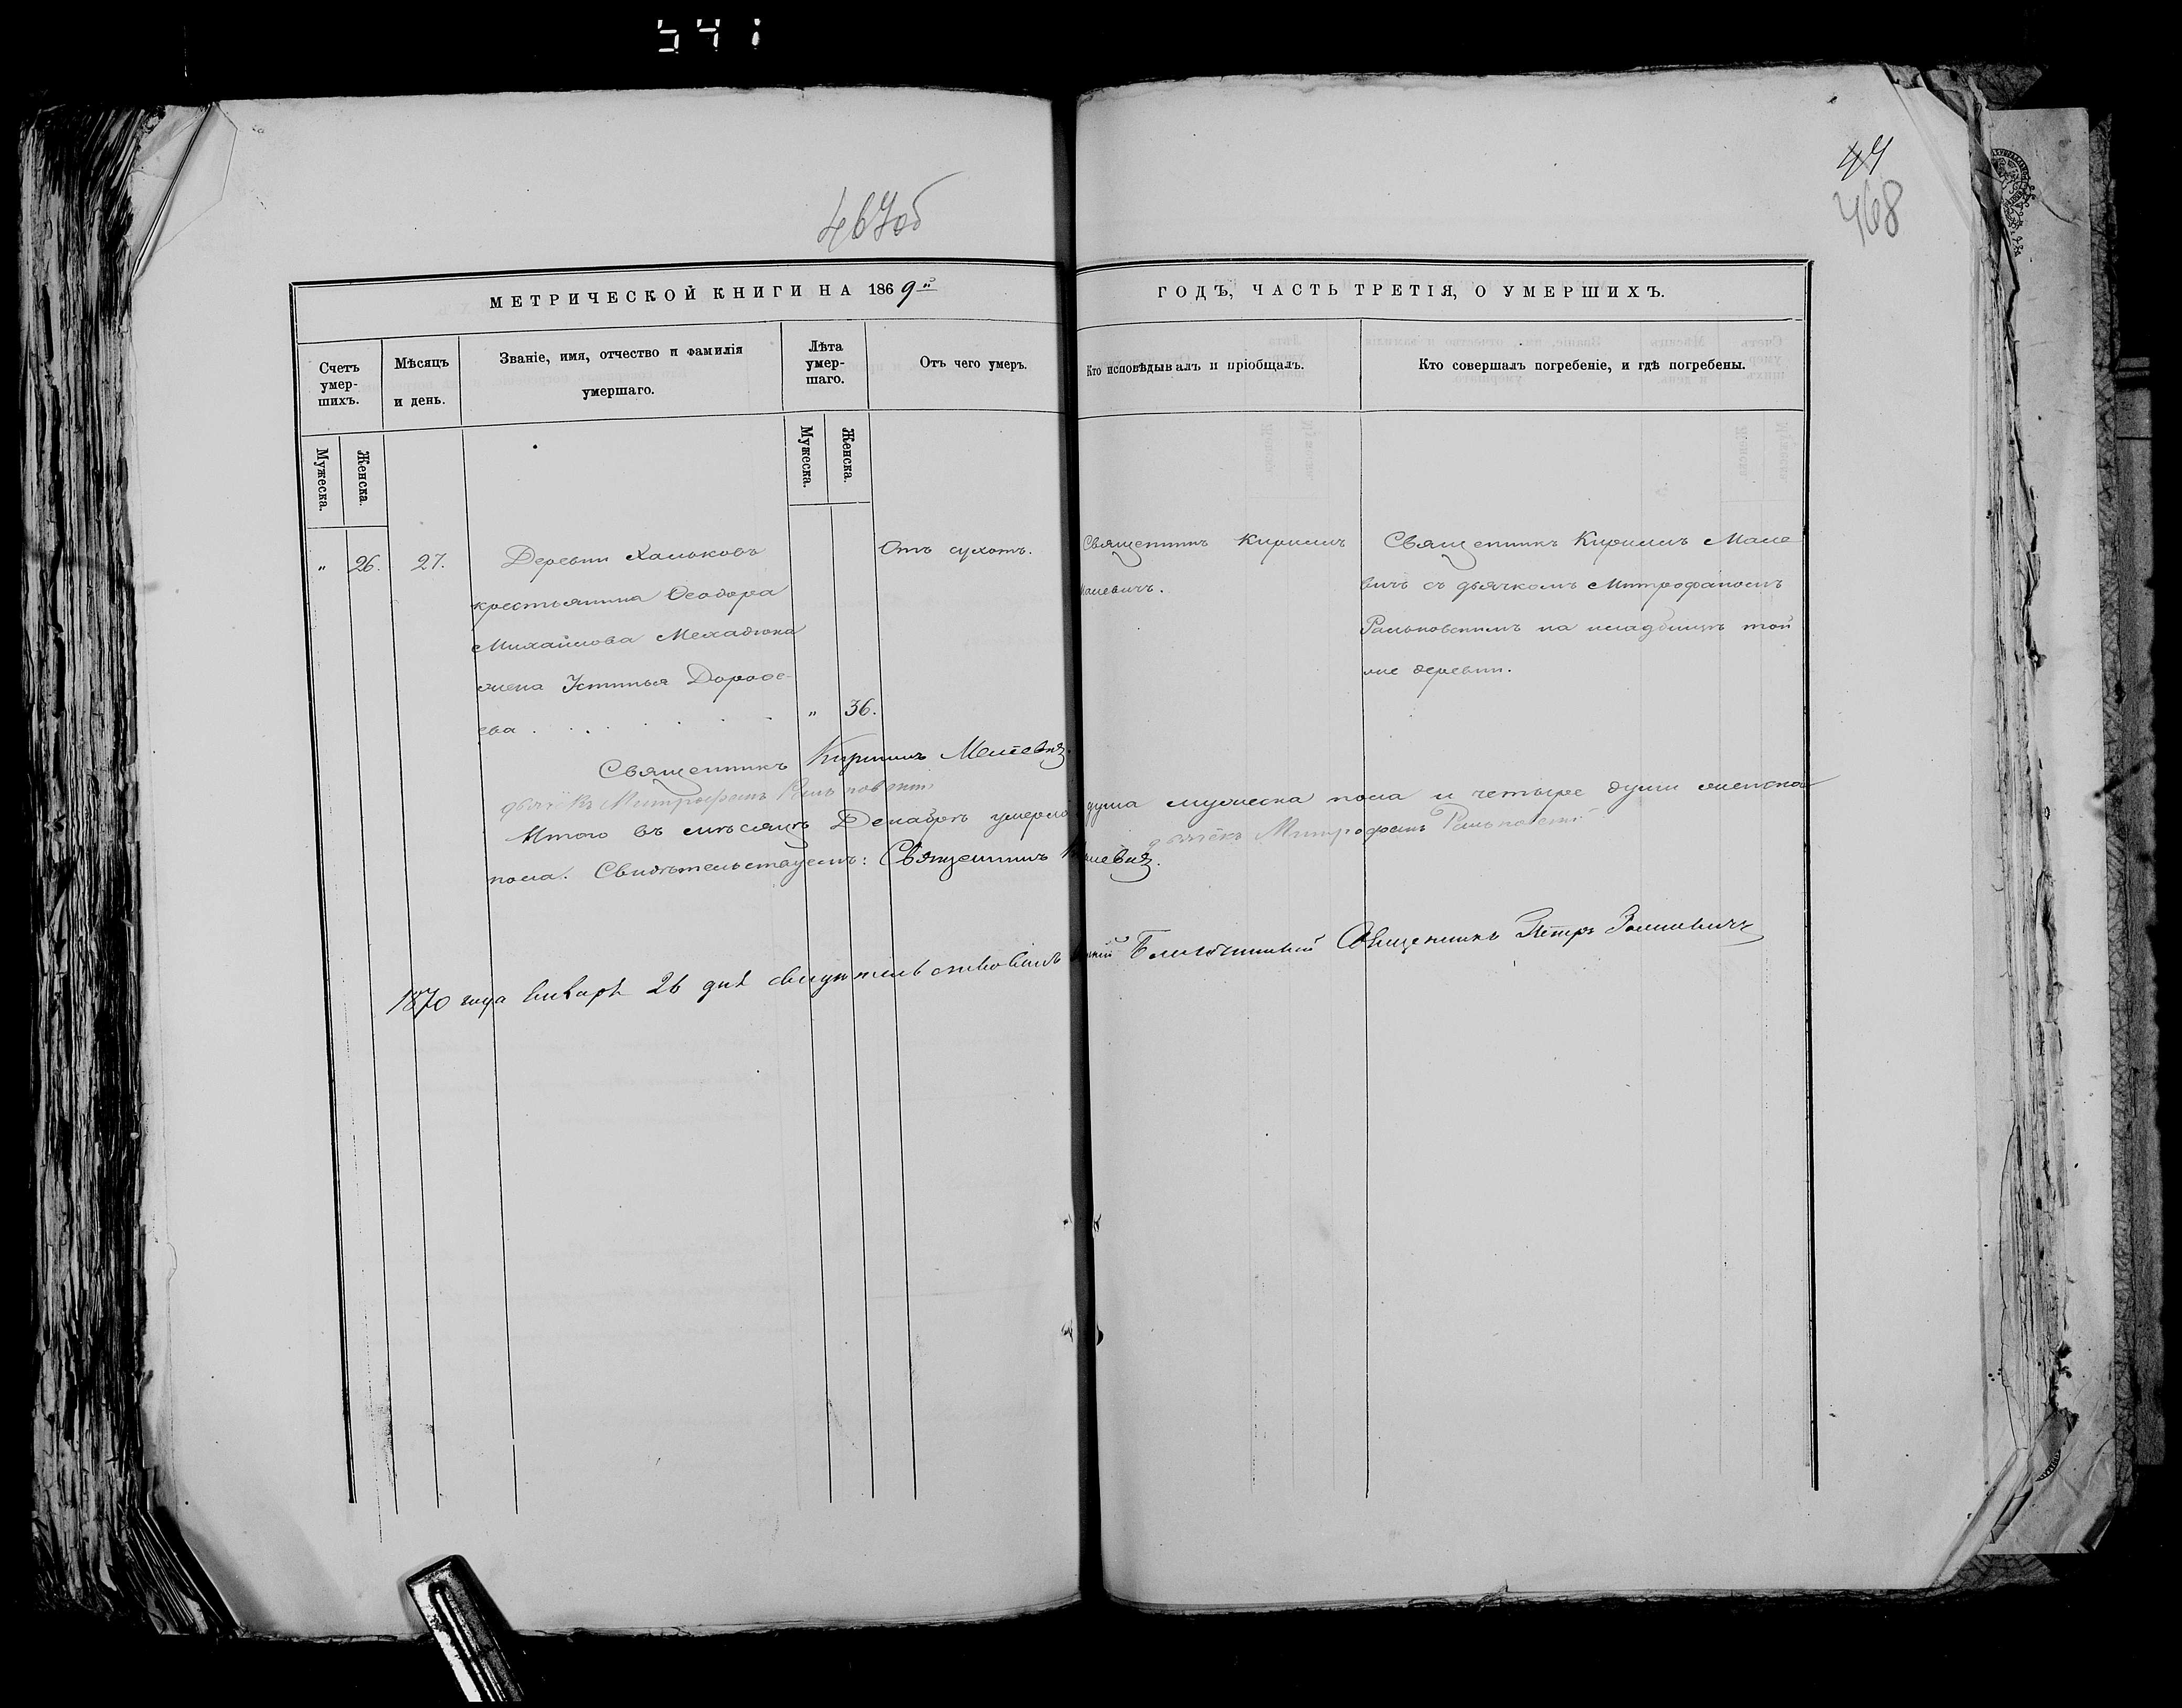 541
467об
44
468
МЕТРИЧЕСКОЙ КНИГИ НА 1869й
ГОДЪ, ЧАСТЬ ТРЕТІЯ, О УМЕРШИХЪ.
Счетъ умер-шихъ.
Мужеска.
Женска.
Мѣсяцъ и день.
Званіе, имя, отчество и фамилія умершаго.
Лѣта умер-шаго.
Мужеска.
Женска.
Отъ чего умеръ.
Кто исповѣдывалъ и пріобщалъ.
Кто совершалъ погребеніе, и гдѣ погребены.
" 26. 27. Деревни Хальковъ
крестьянина Ѳеодора
Михайлова
жена Устинья Дороѳе-
ева . . . . . . . " 36.
Отъ сухотъ.
Священникъ Кириллъ
Малевичъ.
Священникъ Кириллъ Мале
вичъ съ дьячкомъ Митрофаномъ
на кладбищѣ той
же деревни.
Священникъ Кириллъ Малевичъ.
дьячёкъ Митрофанъ
Итого въ мѣсяцѣ Декабрѣ умерло душа мужеска пола и четыре души женска
пола. Свидѣтельствуемъ: Священникъ Малевичъ.
дьячёкъ Митрофанъ
1870 года Января 26 дня свидѣтельствовалъ Благочинный Священникъ Петръ